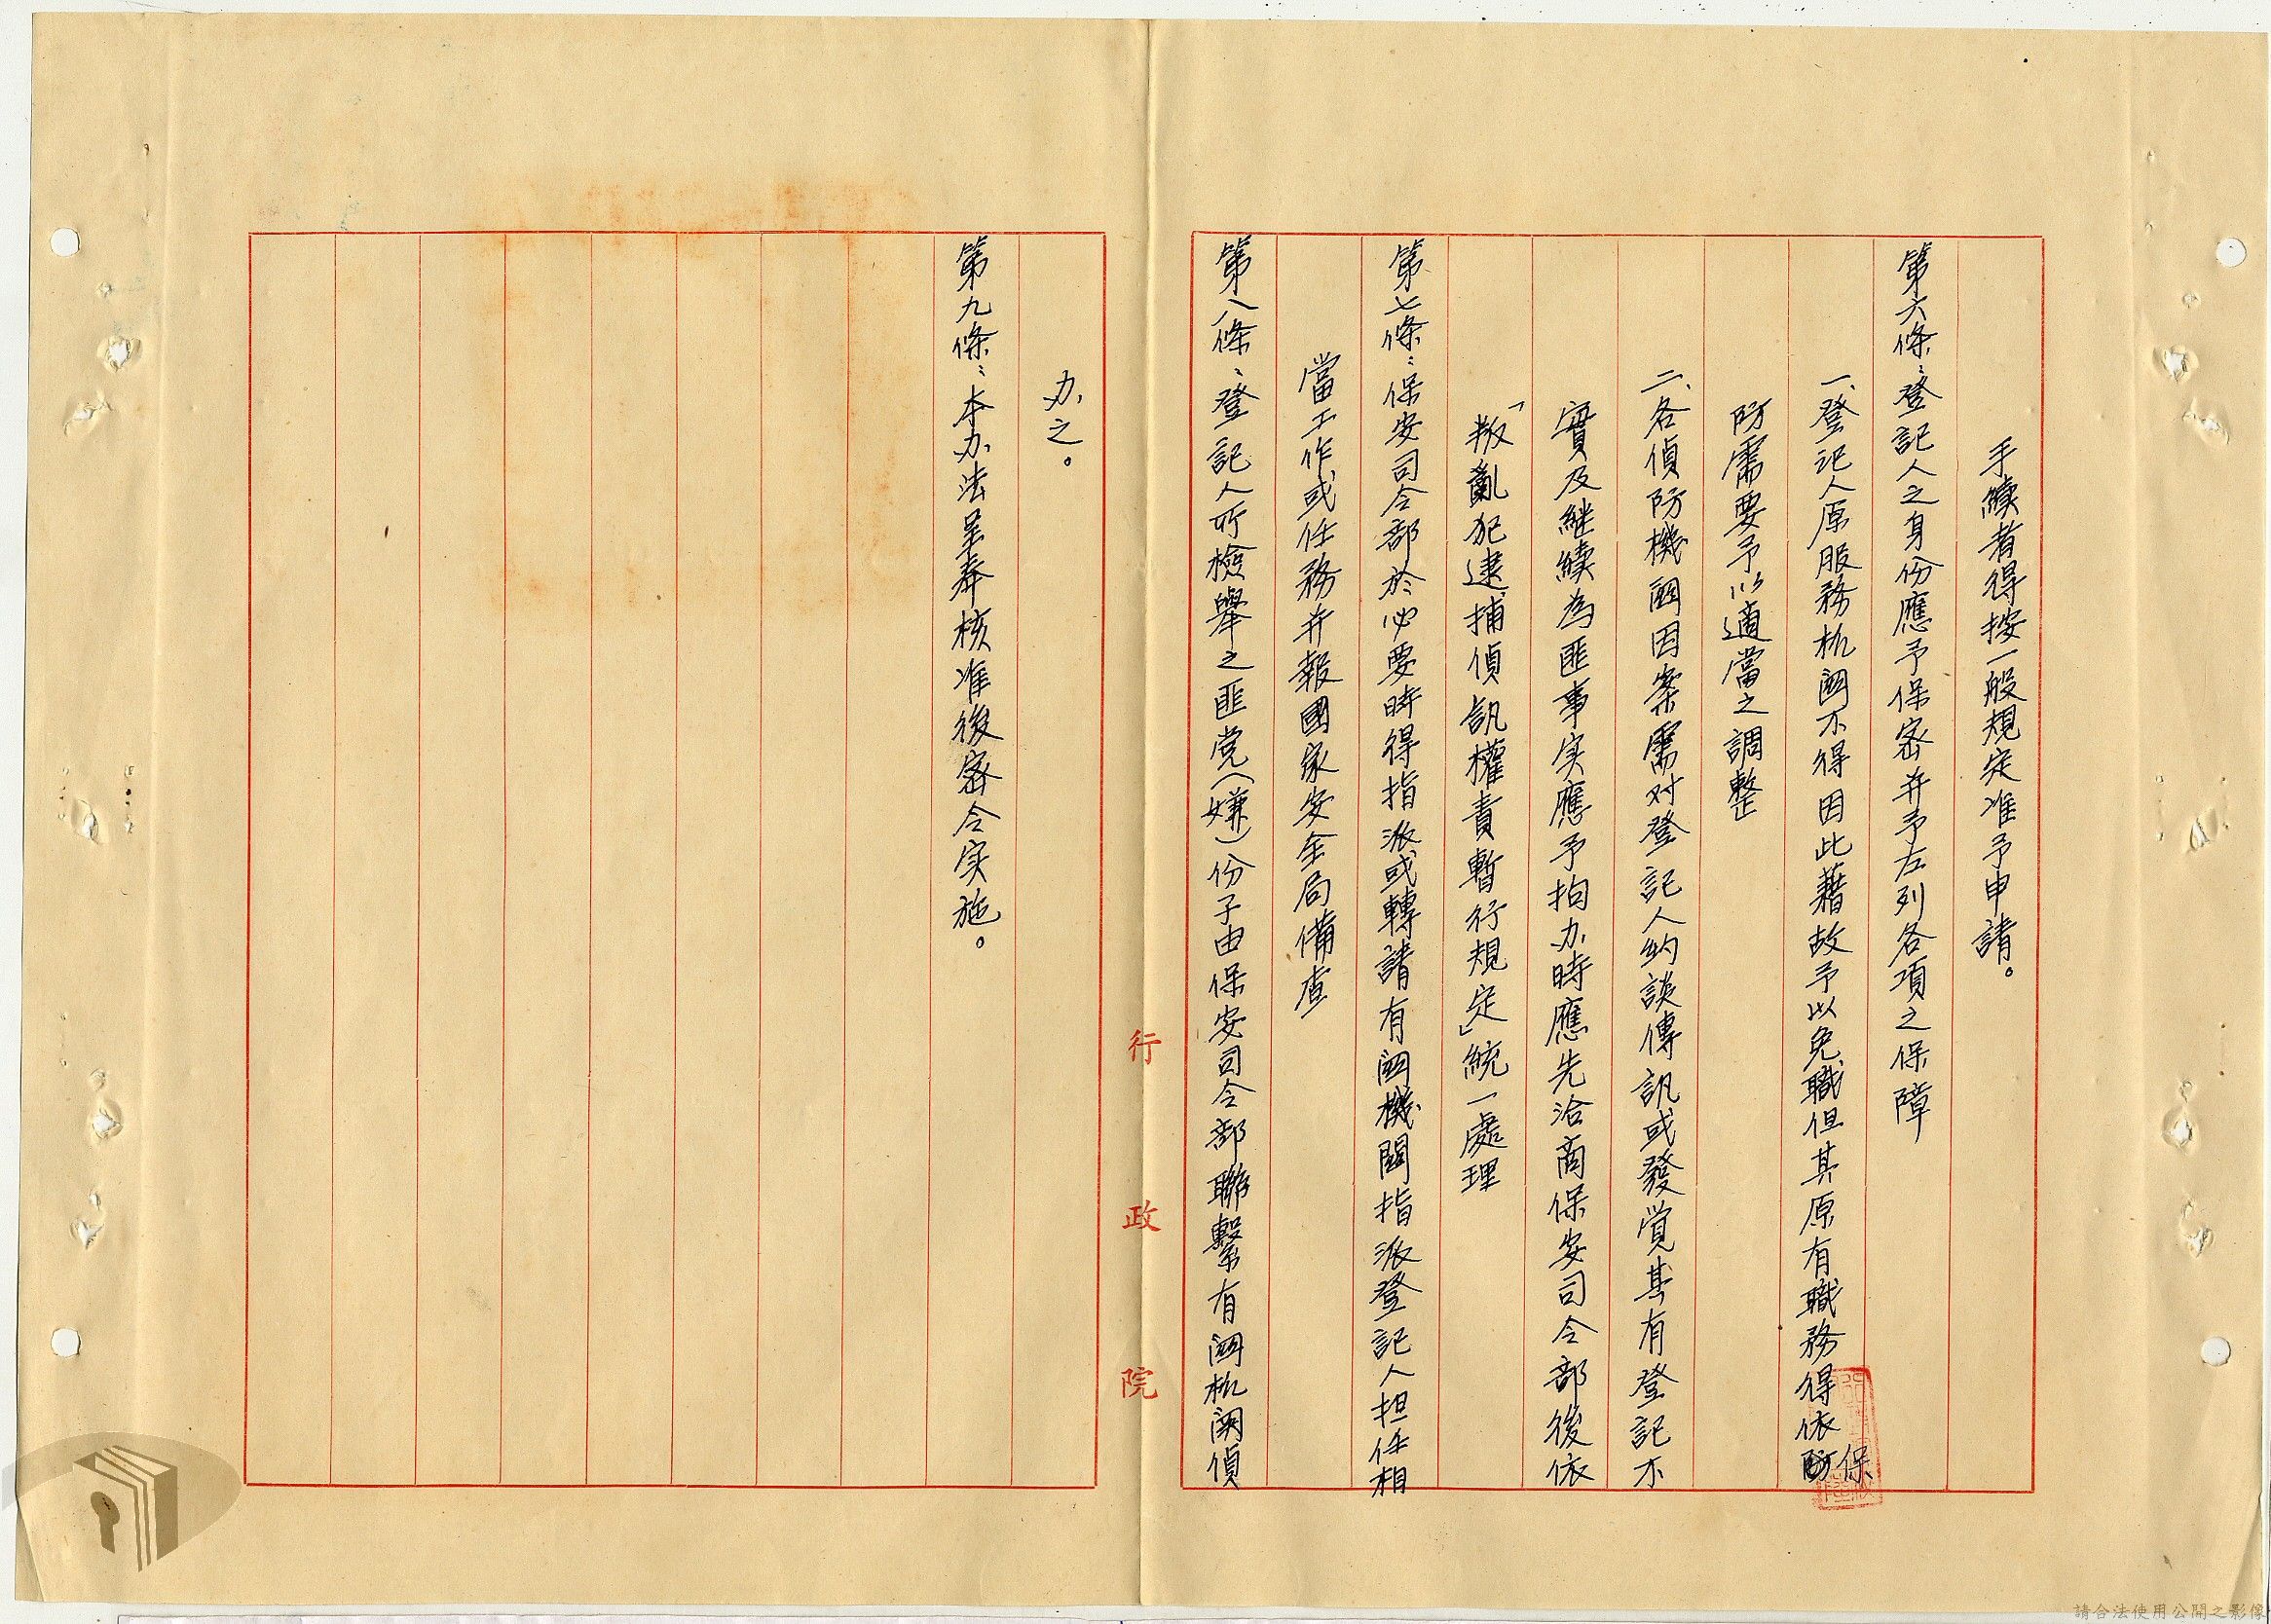 手續者得按一般規定准予申請。
第六條：登記人之身份應予保密并予左列各項之保障
一、登记人原服務机關不得因此藉故予以免職但其原有職務得依保
防需要予以適當之調整
二、各偵防機關因案需对登記人約談傳訊或發覚其有登記不
實及継續為匪事实應予拘办時應先洽商保安司令部後依
「叛亂犯逮捕偵訊權責暫行規定」統一處理
第七條：保安司令部於必要時得指派或轉請有關機關指派登記人担任相
當工作或任務并報國家安全局備查
第八條：登記人所檢舉之匪党（嫌）份子由保安司令部聯繫有關机関偵
办之。
第九條：本办法呈奉核准後密令实施。
行政院
請合法使用公開之影像